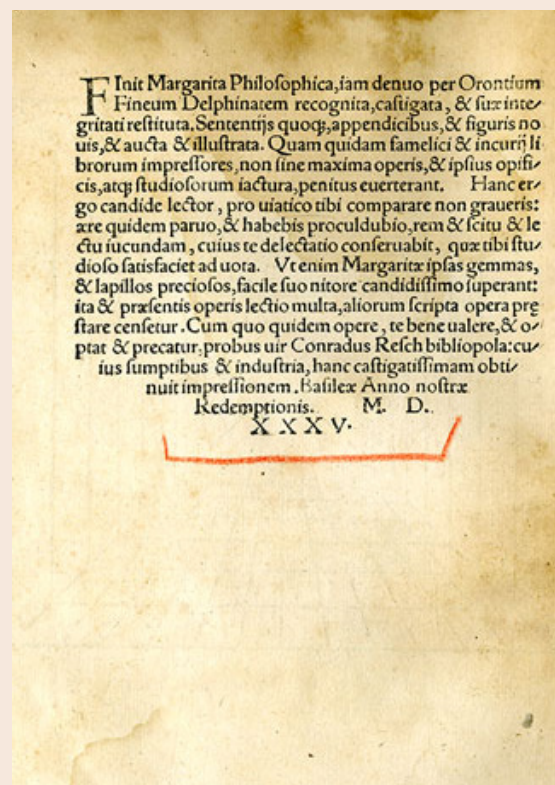 FInit Margarita Philoſophica,iam denuo per Orontium
Fineum Delphinatem recognita,caſtigata, & ſuæ inte⸗
gritati reſtituta. Sententijs quoq;,appendicibus,& figuris no
uis,& aucta & illuſtrata. Quam quidam famelici & incurij li
brorum impreſſores,non ſine maxima operis,& ipſius opifi⸗
cis,atq; ſtudioſorum iactura,penitus euerterant. Hanc er⸗
go candide lector, pro uiatico tibi comparare non graueris:
ære quidem paruo,& habebis proculdubio,rem & ſcitu & le
ctu iucundam, cuius te delectatio conſeruabit, quæ tibi ſtu⸗
dioſo ſatisfaciet ad uota. Vt enim Margaritæ ipſas gemmas,
& lapillos precioſos,facile ſuo nitore candidiſſimo ſuperant:
ita & præſentis operis lectio multa,aliorum ſcripta opera pre
ſtare cenſetur. Cum quo quidem opere, te bene ualere,& o⸗
ptat & precatur,probus uir Conradus Reſch bibliopola:cu⸗
ius ſumptibus & induſtria, hanc caſtigatiſſimam obti⸗
nuit impreſſionem. Baſileæ Anno noſtræ
Redemptionis. M. D.
X X X V.